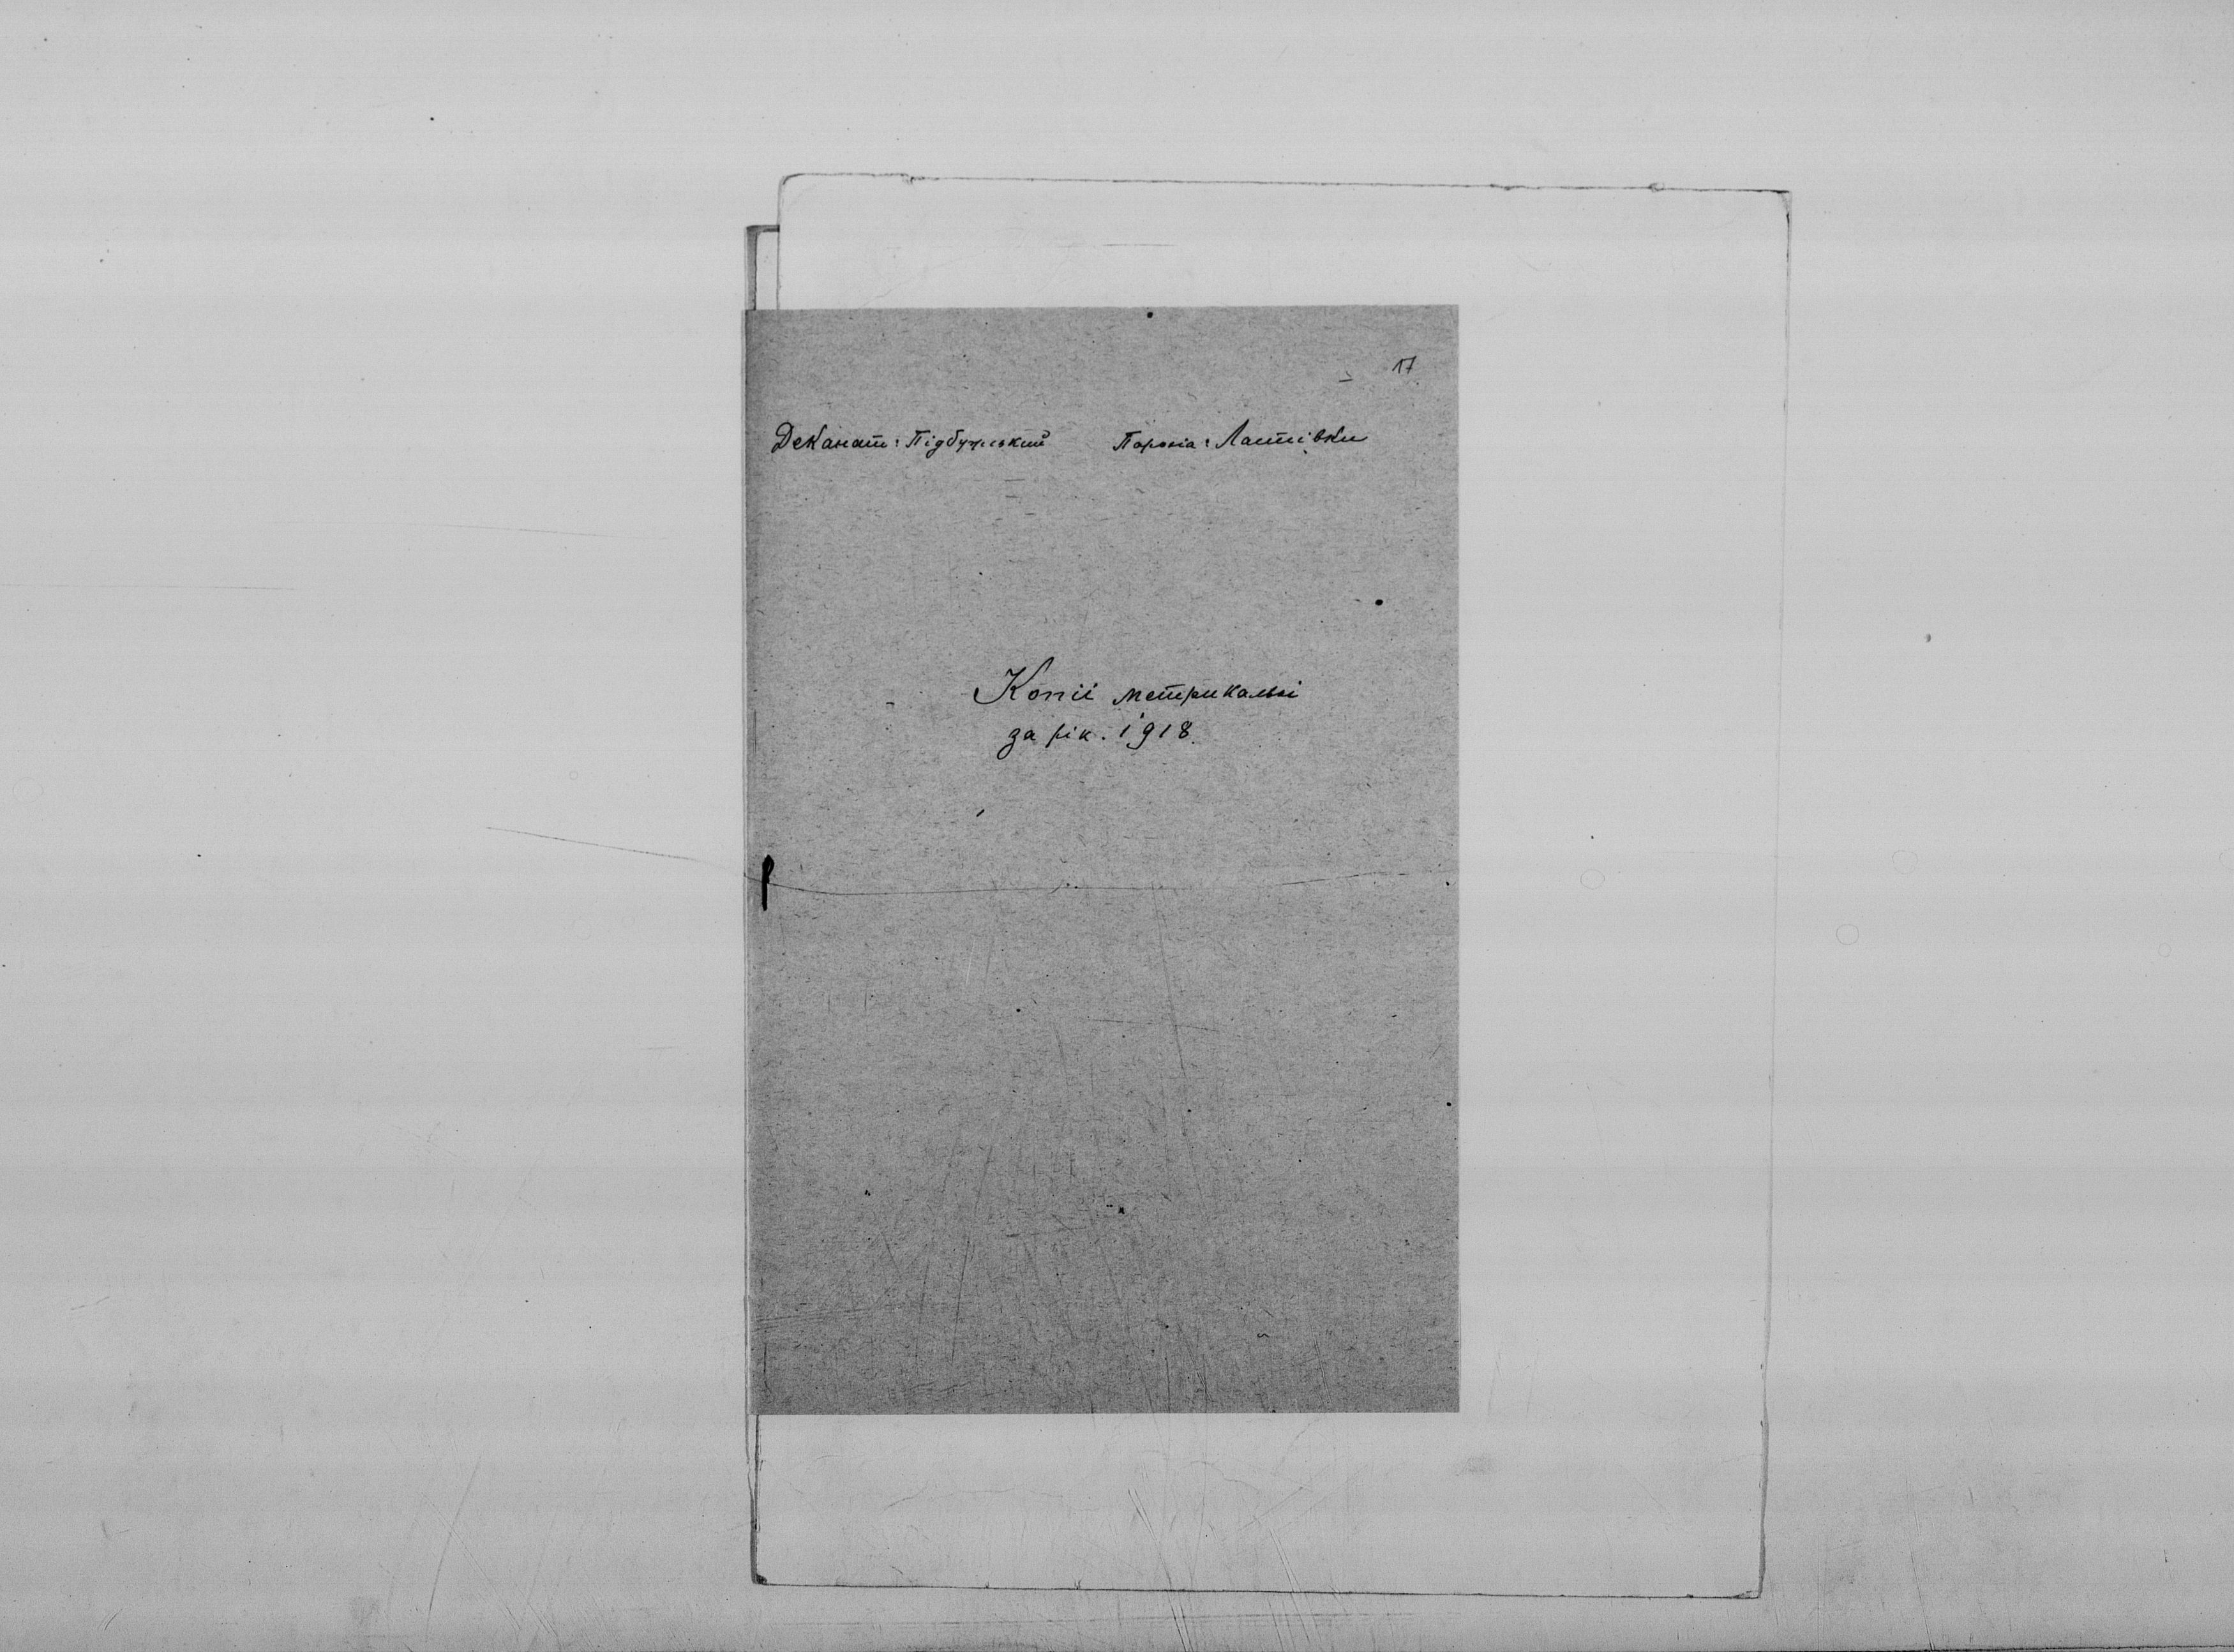 17
Деканат: Підбужський Парохія: Лаштівки
Копії метрикальні
за рік. 1918.